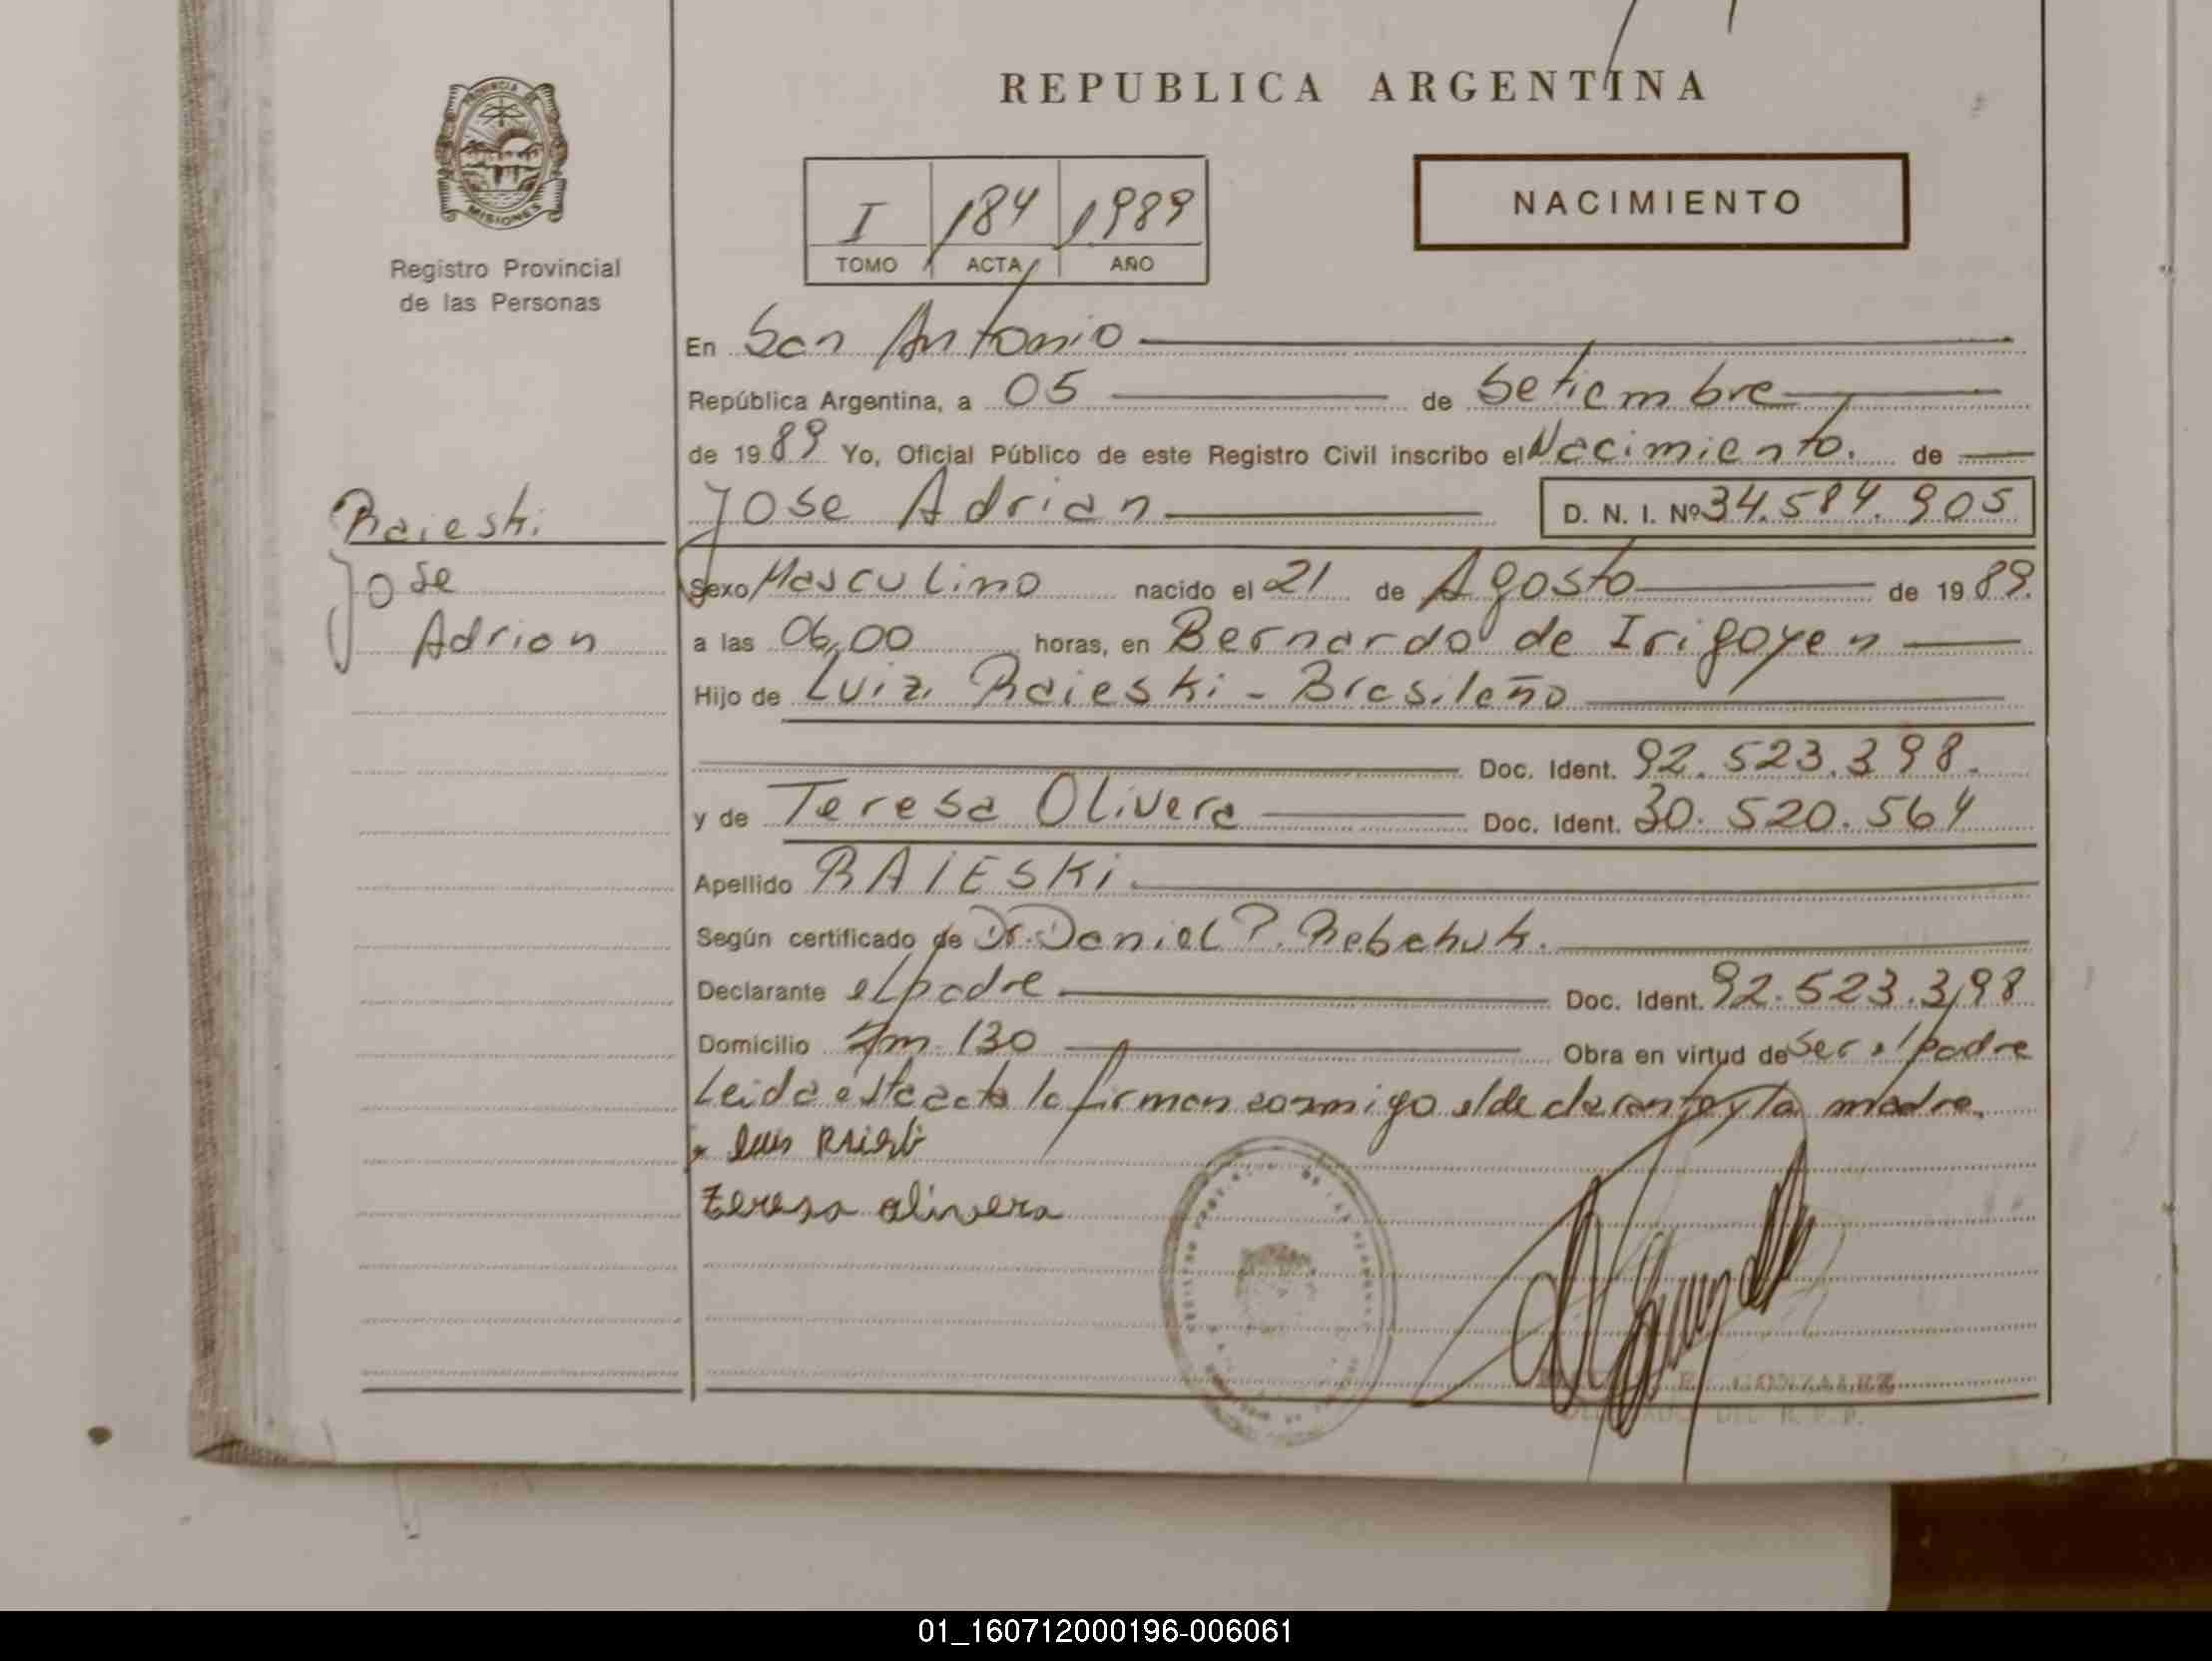 REPUBLICA ARGENTINA
PROVINCIA DE
MISIONES
Registro Provincial
de las Personas
I 184 1989
TOMO ACTA AÑO
NACIMIENTO
En San Antonio
República Argentina, a 05 de Setiembre
de 1989 Yo, Oficial Público de este Registro Civil inscribo el Nacimiento. de
Jose Adrian D. N. I. Nº 34.584.905
Raieski
Jose
Adrian
Sexo Masculino nacido el 21 de Agosto de 1989.
a las 06,00 horas, en Bernardo de Irigoyen
Hijo de Luiz Raieski - Brasileño
Doc. Ident. 92.523.398.
y de Teresa Olivera Doc. Ident. 30.520.564
Apellido RAIESKI
Según certificado de Dr. Daniel P. Rebchuk.
Declarante el padre Doc. Ident. 92.523.398
Domicilio Km 130 Obra en virtud de ser el padre
Leida esta acta la firman conmigo el declarante y la madre.
Teresa olivera
E. GONZALEZ
DEL R. P. P.
01_160712000196-006061